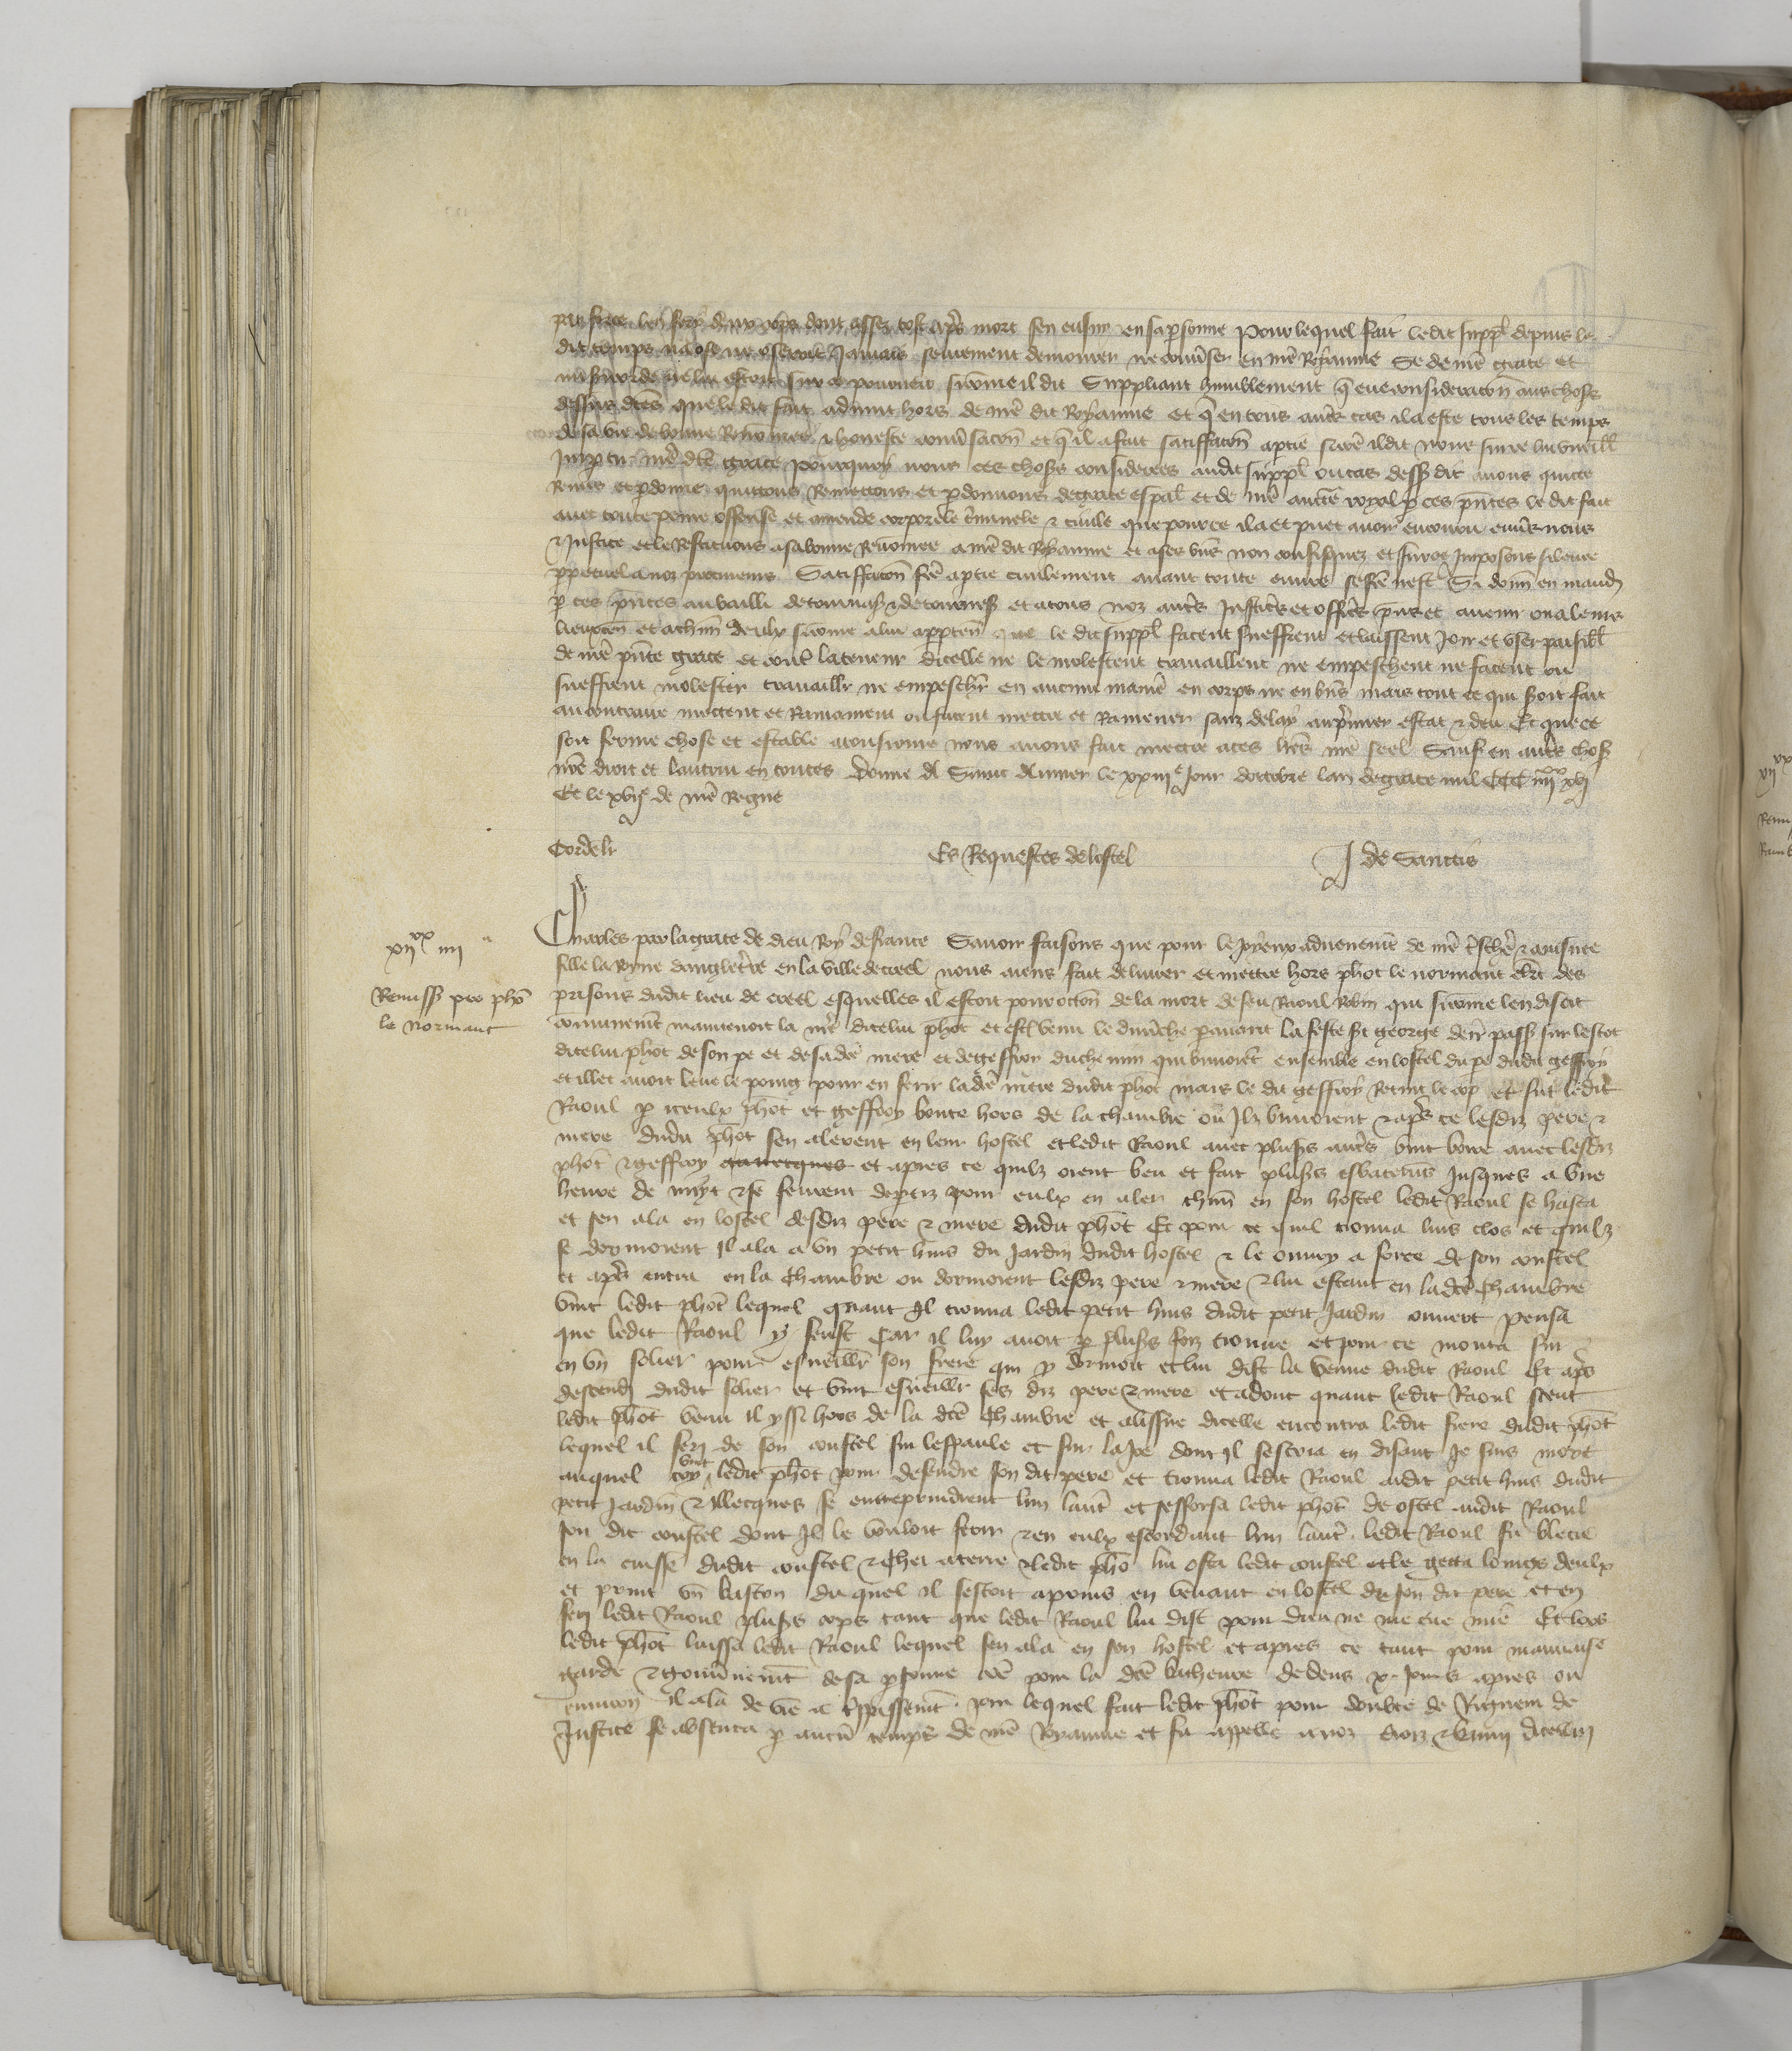 par force len fery deux cops dont assez tost apres mort sen ensuy en sa personne Pour lequel fait ledit suppl depuis le
dit temps na ose ne oseroit Jamais seurement demourer ne converser en nre Royaume Se de nre grace et
misericorde ne lui estoit sur ce pourveu sicomme il dit Suppliant humblement que eue consideracon aux choses
dessus dites que le dit fait advint hors de nre dit Royaume et que en tous autres cas il a este tous les temps
de sa vie de bonne Renommee et honneste conversacon et que il a fait satiffacon a partie sicome il dit nous sur ce lui vueill
Impartir nre dte grace pourquoy nous ces choses considerees audit suppl ou cas dess dit avons quicte
Remis et pardonne quittons Remettons et pardonnons de grace espal et de nre aucte royal par ces pntes le dit fait
avec toute peine offense et amende corporele criminele et civile que pour ce il a et puet avoir encouru envers nous
et Justice et le Restituons a sa bonne Renommee a nre dit Royaume et a ses biens non confisquez et sur ce Imposons silence
perpetuel a noz procureurs Satiffacon fce a partie civilement avant toute euvre se fce nest Si donn en mand
par ces pntes au bailli de tournay et de tournesis et a tous noz autres Justiciers et officiers pns et avenir ou a leurs
lieuxten et a chun deulx sicomme a lui apperten que le dit suppl facent sueffrent et laissent Joir et user paisibl
de nre pnte grace et contre la teneur dicelle ne le molestent travaillent ne empeschent ne facent ou
sueffrent molester travaillr ne empeschr en aucune maniere en corps ne en biens mais tout ce qui seroit fait
au contraire mettent et Ramainent ou facent mettre et Ramener sanz delay au premier estat et deu Et que ce
soit ferme chose et estable a tousiours nous avons fait mettre a ces lres nre seel Sauf en autres choses
nre droit et lautruy en toutes Donne A Saint Aumer le xxiiie Jour doctobre lan de grace mil CCC iiiixx xvj
Et le xvije de nre Regne
Cordelr
Es Requestes de lostel
J de Sanctis
xiixx iiii
Remiss pro phot
le Normant
Charles par la grace de dieu Roy de france Savoir faisons que pour le Joyeux advenement de nre treschere et ainsnee
fille la Royne dangleterre en la ville de creel nous avons fait delivrer et mettre hors phot le normant clerc des
prisons dudit lieu de creel esquelles il estoit pour occon de la mort de feu Raoul Robin qui sicomme len disoit
communement maintenoit la mere dicelui phot et est venu le dimenche paravant la feste st george derr passe sur lescot
dicelui phot de son pe et de sa dce mere et de geffroy duchemin qui buvoient ensemble en lostel du pe dudit geffroy
et illec avoit leve le poing pour en ferir la dce mere dudit phot mais le dit geffroy Retint le cop et fut ledit
Raoul par iceulx phot et geffroy boute hors de la chambre ou Ilz buvoient et apres ce lesdiz pere et
mere dudit phot sen alerent en leur hostel et ledit Raoul avec plusrs autres vint boire avec lesdiz
phot et geffroy et apres ce quilz orent beu et fait plusrs esbatemens Jusques a une
heure de nuyt et se feurent departiz pour eulx en aler chun en son hostel ledit Raoul se hasta
et sen ala en lostel desdiz pere et mere dudit phot Et pour ce quil trouva luis clos et quilz
se dormoient Il ala a un petit huis du Jardin dudit hostel et le ouvry a force de son coustel
et apres entra en la chambre ou dormoient lesdiz pere et mere et lui estant en ladce chambre
vint ledit phot lequel quant Il trouva ledit petit huis dudit petit Jardin ouvert pensa
que ledit Raoul y feust Car il luy avoit par plusrs foiz trouve et pour ce monta sur
en un solier pour esveillr son frere qui y dormoit et lui dist la venue dudit Raoul Et apres
descendi dudit solier et vint esveillr ses diz pere et mere et adont quant ledit Raoul scent
ledit phot venu il yssi hors de la dce chambre et a lissue dicelle encontra ledit frere dudit phot
lequel il feri de son coustel sur lespaule et sur la Joe dont Il sescria en disant Je suis mort
auquel cry vint ledit phot pour defendre son dit pere et trouva ledit Raoul audit petit huis dudit
petit Jardin et Illecques se entreprindrent lun lautre et sefforsa ledit phot de oster audit Raoul
son dit coustel dont Il le vouloit ferir et en eulx escordant lun lautre ledit Raoul fu blecie
en la cuisse dudit coustel et chei a terre et ledit pho lui osta ledit coustel et le getta loings deulx
et print un baston duquel il sestoit apouie en venant en lostel de son dit pere et en
feri ledit Raoul plusrs cops tant que ledit Raoul lui dist pour dieu ne me tue mie Et lors
ledit phot laissa ledit Raoul lequel sen ala en son hostel et apres ce tant pour mauvaise
garde et gouvernement de sa personne come pour la dce bateure dedens x Jours apres ou
environ il ala de vie a trespassement pour lequel fait ledit phot pour doubte de Rigueur de
Justice se absenta par aucun temps de nre Royaume et fu appelle a noz droiz et banny dicellui